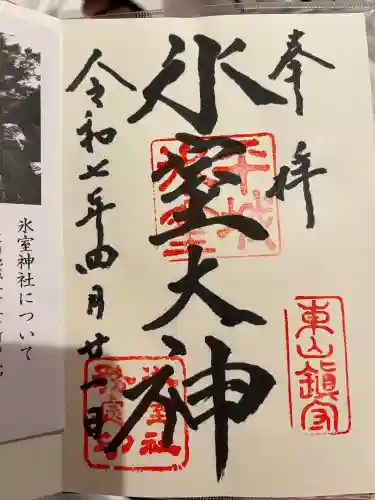 奉拝
氷室大神
令和七年四月廿一日
東山鎮守
氷室神社について